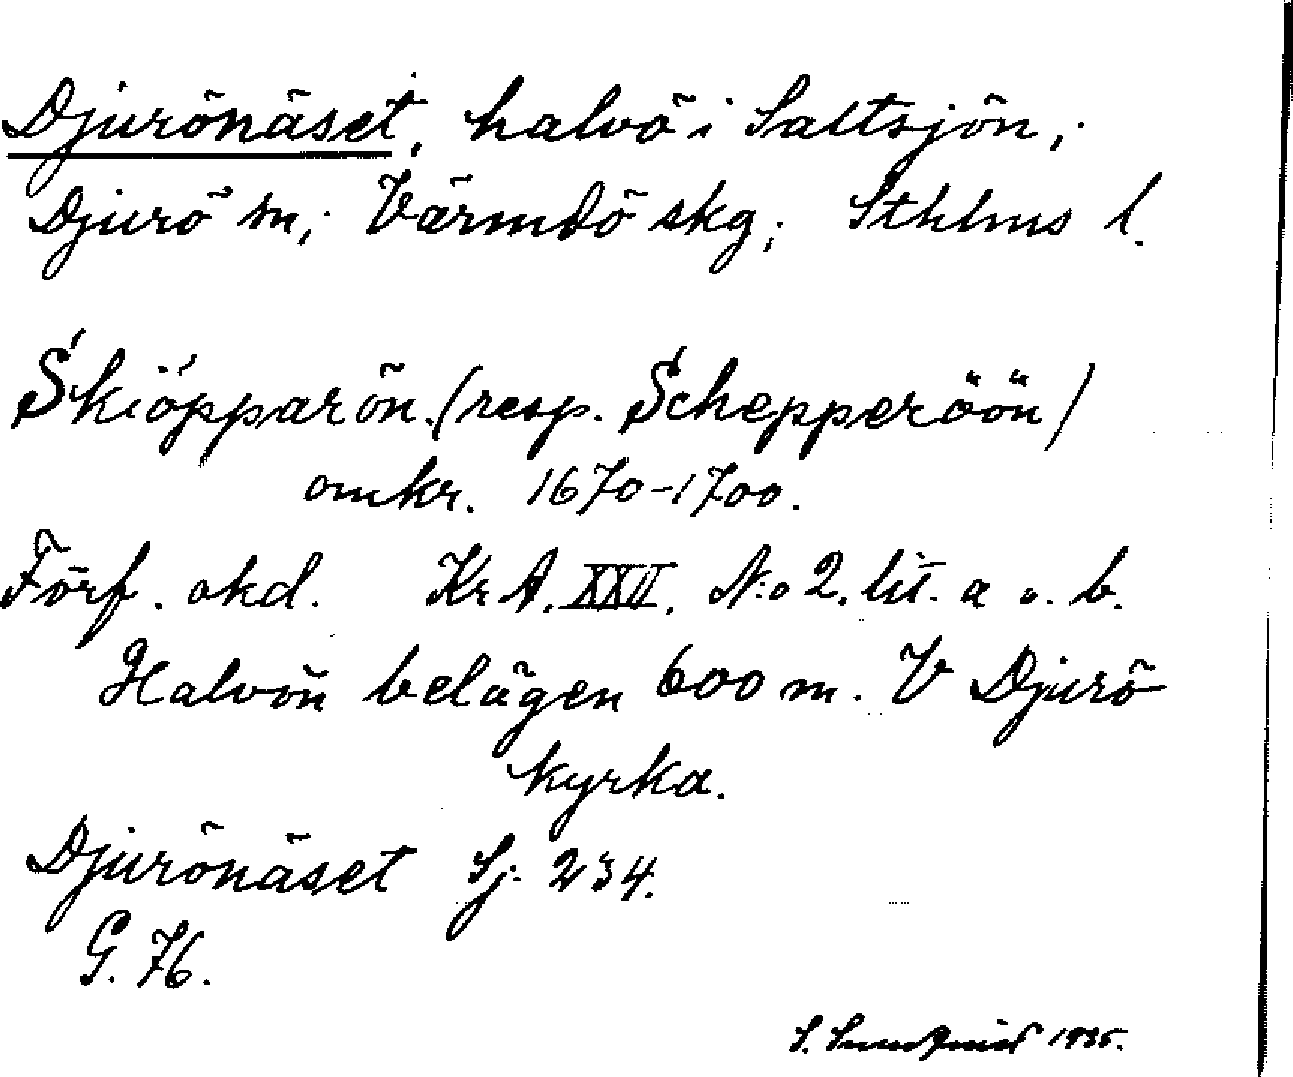 Djurönäset, halvö i Saltsjön,
Djurö sn; Värmdö skg; Sthlms l.
Skiöpparön. (resp. Schepperöön)
omkr. 1670-1700.
Förf. okd. KrA. XXV. N:o 2. lit. a o. b.
Halvön belägen 600 m. V Djurö
kyrka.
Djurönäset Sj. 234.
G. 76.
S. 1935.